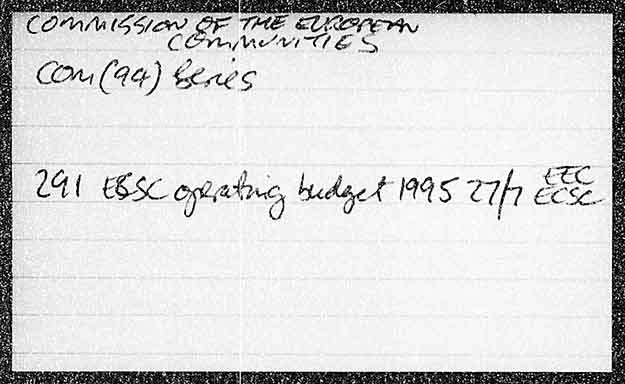 COMMISSION OF THE EUROPEAN
COMMUNITIES
COM(94) Series
EEC
291 ECSC operating budget 1995 27/7 ECSC